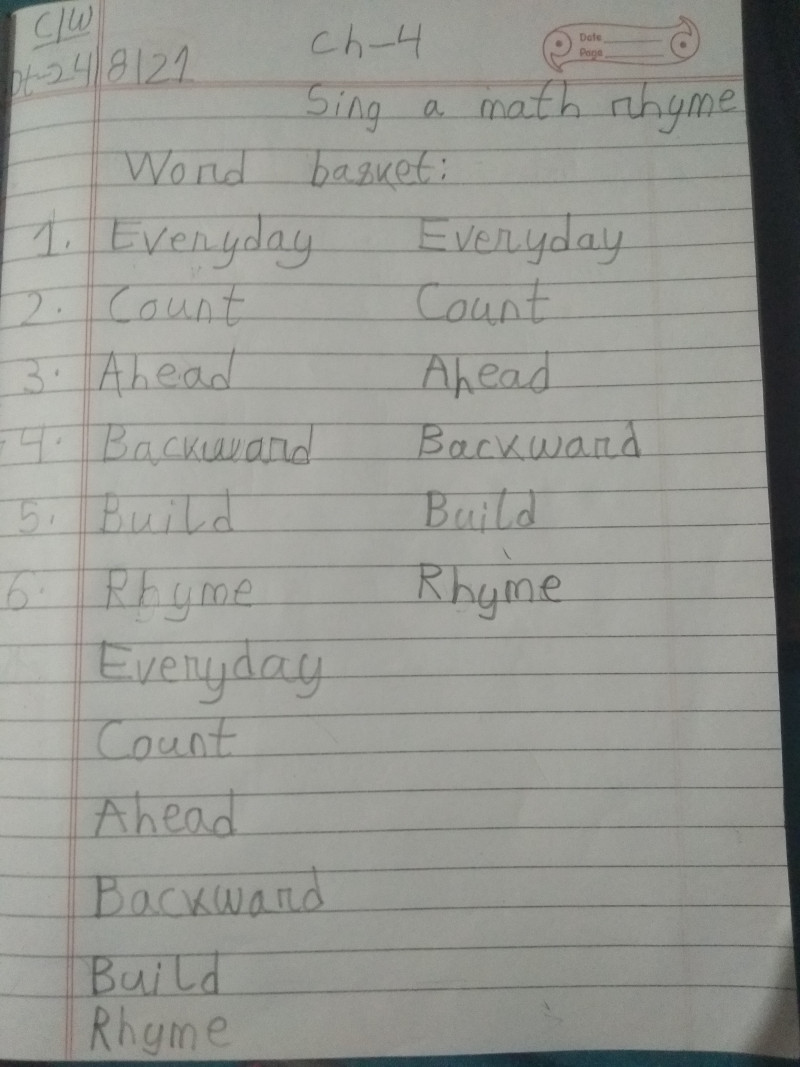 C/W
Ch-4
Date
Page
Dt-24/8/21
Sing a math rhyme
Word basket:
1. Everyday Everyday
2. Count Count
3. Ahead Ahead
4. Backward Backward
5. Build Build
6. Rhyme Rhyme
Everyday
Count
Ahead
Backward
Build
Rhyme